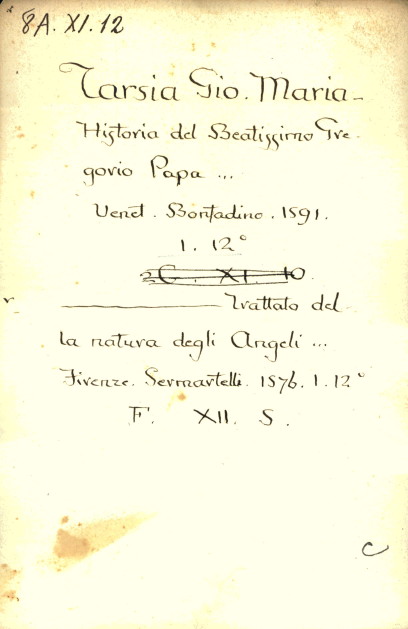 8A. XI. 12
Tarsia Gio. Maria -
Historia del Beatissimo Gre-
gorio Papa ...
Venet. Bonfadino. 1591.
1. 12°
C. XI. 10.
——— Trattato del
la natura degli Angeli ...
Firenze. Sermartelli. 1576. 1. 12°
F. XII. S.
C